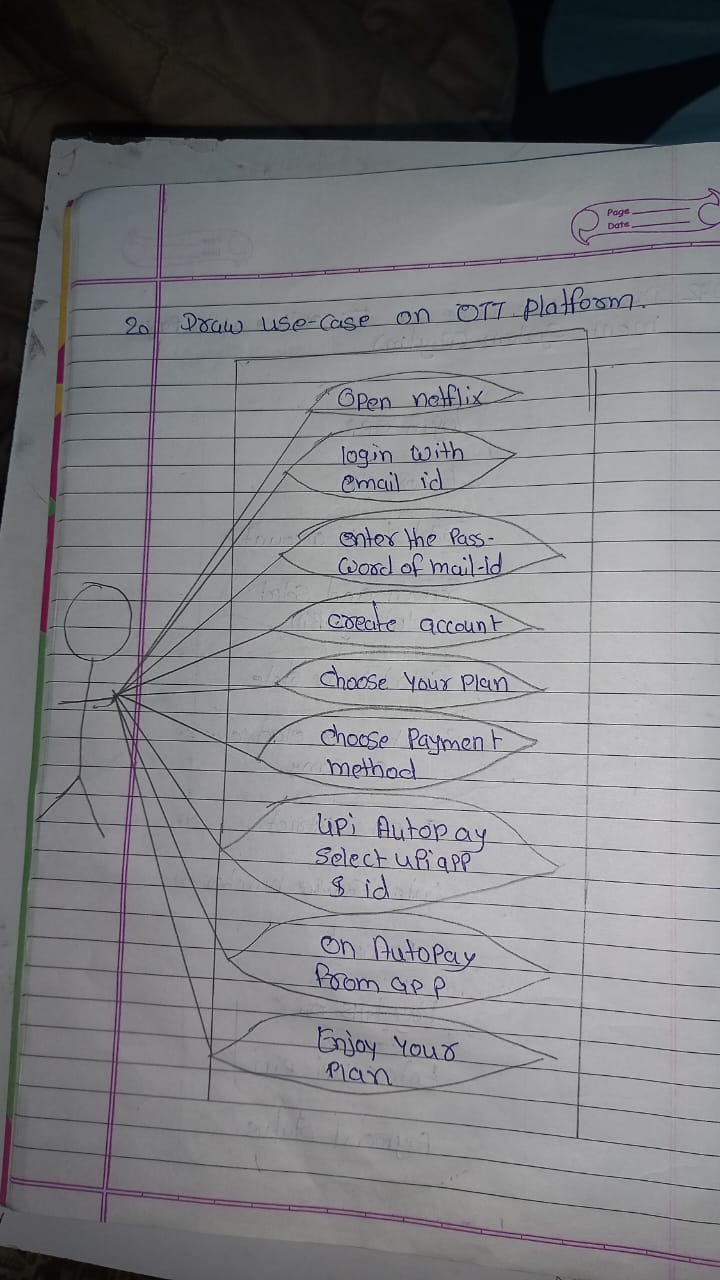 Page
Date
20 Draw use-case on OTT platform.
Open netflix
login with
email id
enter the Pass-
word of mail-id
create account
choose your plan
choose Payment
method
upi Autopay
Select upi app
& id
on Autopay
from app
Enjoy your
Plan